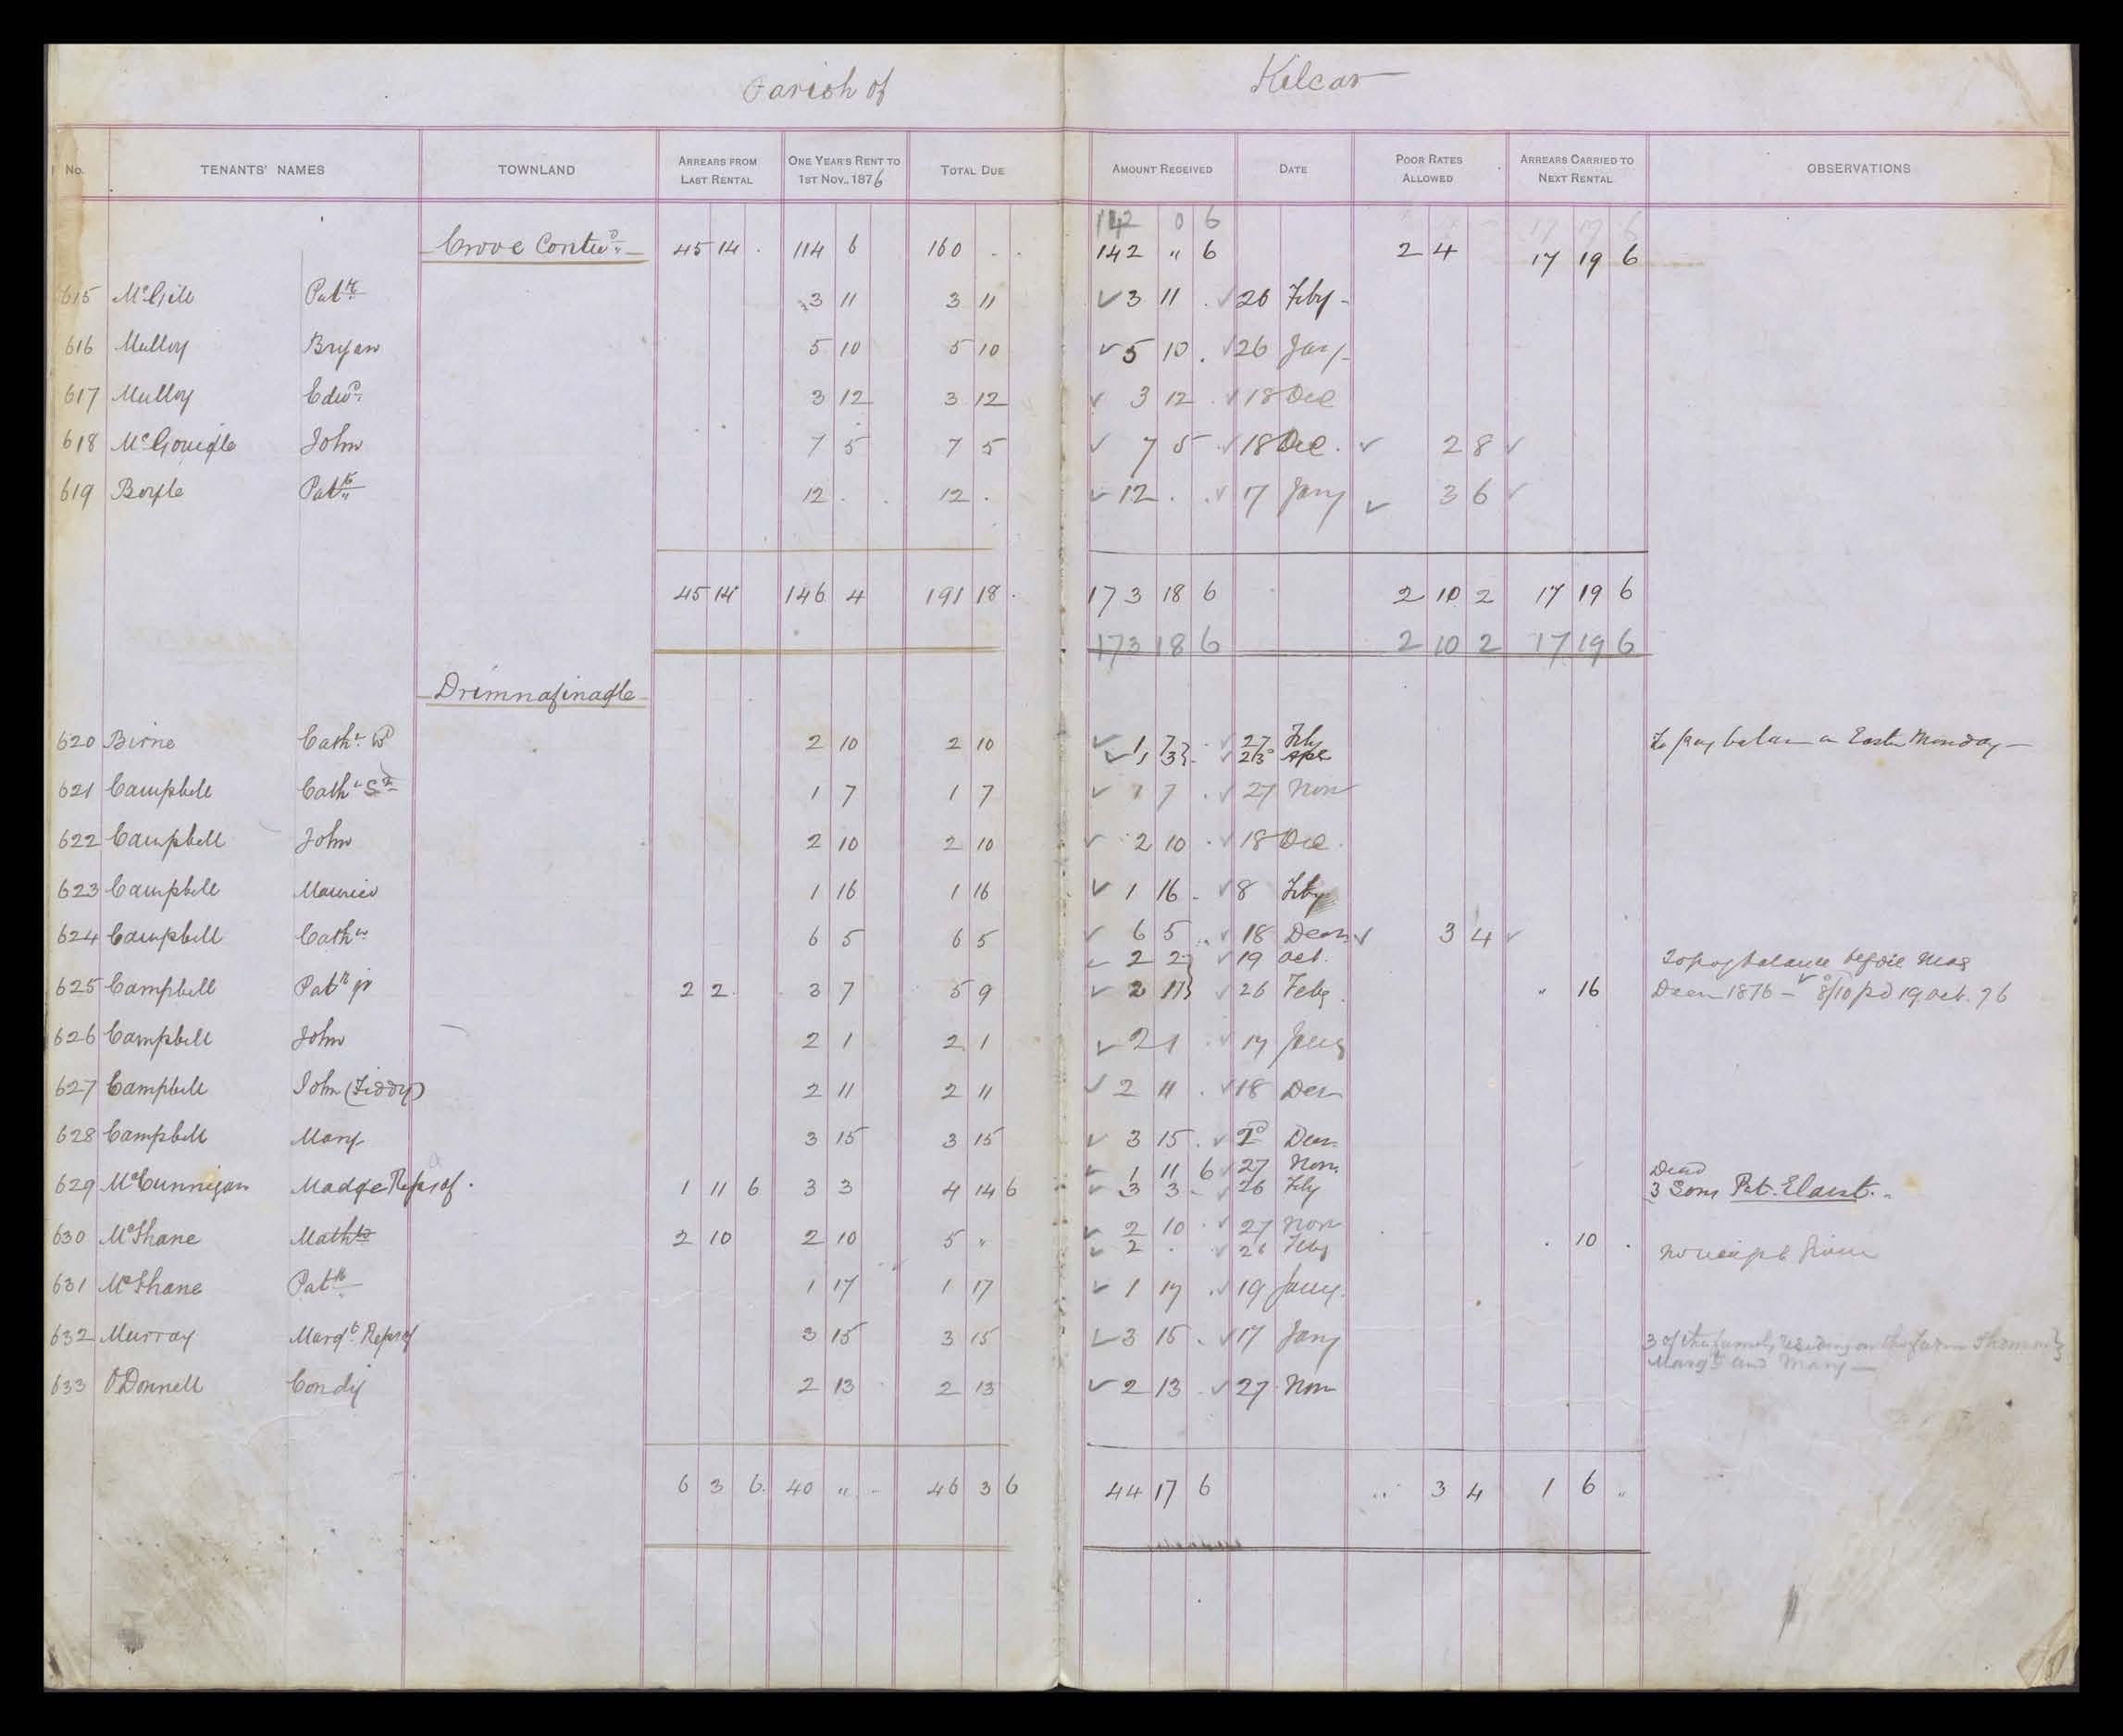 Parish of Kilcar
No. TENANTS' NAMES TOWNLAND ARREARS FROM LAST RENTAL ONE YEAR'S RENT TO 1ST NOV., 1876 TOTAL DUE AMOUNT RECEIVED DATE POOR RATES ALLOWED ARREARS CARRIED TO NEXT RENTAL OBSERVATIONS
142 0 6
Crove Contd. 45 14 . 114 6 160 . . 142 " 6 2 4 17 19 6
615 McGill Patk 3 11 3 11 ✓ 3 11 . ✓ 26 Feby
616 Mulloy Bryan 5 10 5 10 ✓ 5 10 . ✓ 26 Jany
617 Mulloy Edwd. 3 12 3 12 ✓ 3 12 . ✓ 18 Dec
618 McGonigle John 7 5 7 5 ✓ 7 5 . ✓ 18 Dec. ✓ 2 8 ✓
619 Boyle Patk 12 . . 12 . ✓ 12 . . ✓ 17 Jany ✓ 3 6 ✓
45 14 146 4 191 18 . 173 18 6 2 10 2 17 19 6
173 18 6 2 10 2 17 19 6
Drimnafinagle
620 Birne Cathe. Wd 2 10 2 10 ✓ 1 7 . ✓ 27 Feby To pay balan on Easter Monday
✓ 1 3 . ✓ 23 Apl
621 Campbell Cathe Sr 1 7 1 7 ✓ 1 7 . ✓ 27 Nov
622 Campbell John 2 10 2 10 ✓ 2 10 . ✓ 18 Dec.
623 Campbell Maurice 1 16 1 16 ✓ 1 16 . ✓ 8 Feby
624 Campbell Cathe 6 5 6 5 ✓ 6 5 ,, ✓ 18 Decr ✓ 3 4 ✓
✓ 2 2 ✓ 19 Oct. To pay balance before
625 Campbell Patk jr 2 2 . 3 7 5 9 ✓ 2 11 ✓ 26 Feby . " 16 Decr 1876 - ✓ 8/10 pd 19 Oct. 76
626 Campbell John 2 1 2 1 ✓ 2 1 . ✓ 17 Jany
627 Campbell John (Fiddy) 2 11 2 11 ✓ 2 11 . ✓ 18 Decr
628 Campbell Mary 3 15 3 15 ✓ 3 15 . ✓ 2d Decr
✓ 1 11 6 ✓ 27 Nov. Dead
629 McCunnigan Madge Reps of . 1 11 6 3 3 4 14 6 ✓ 3 3 - ✓ 26 Feby 3 Sons Pat. Eldest.
630 McShane Mathw 2 10 2 10 5 " ✓ 2 10 . ✓ 27 Nov . 10 .
✓ 2 . ✓ 26 Feby No receipt given
631 McShane Patk 1 17 1 17 ✓ 1 17 . ✓ 19 Jany.
632 Murray Margt. Reps of 3 15 3 15 ✓ 3 15 . ✓ 17 Jany 3 of the family residing on the farm Thomas
Margt and Mary
633 O'Donnell Condy 2 13 2 13 ✓ 2 13 . ✓ 27 Nov
6 3 6. 40 " - 46 3 6 44 17 6 .. 3 4 1 6 "